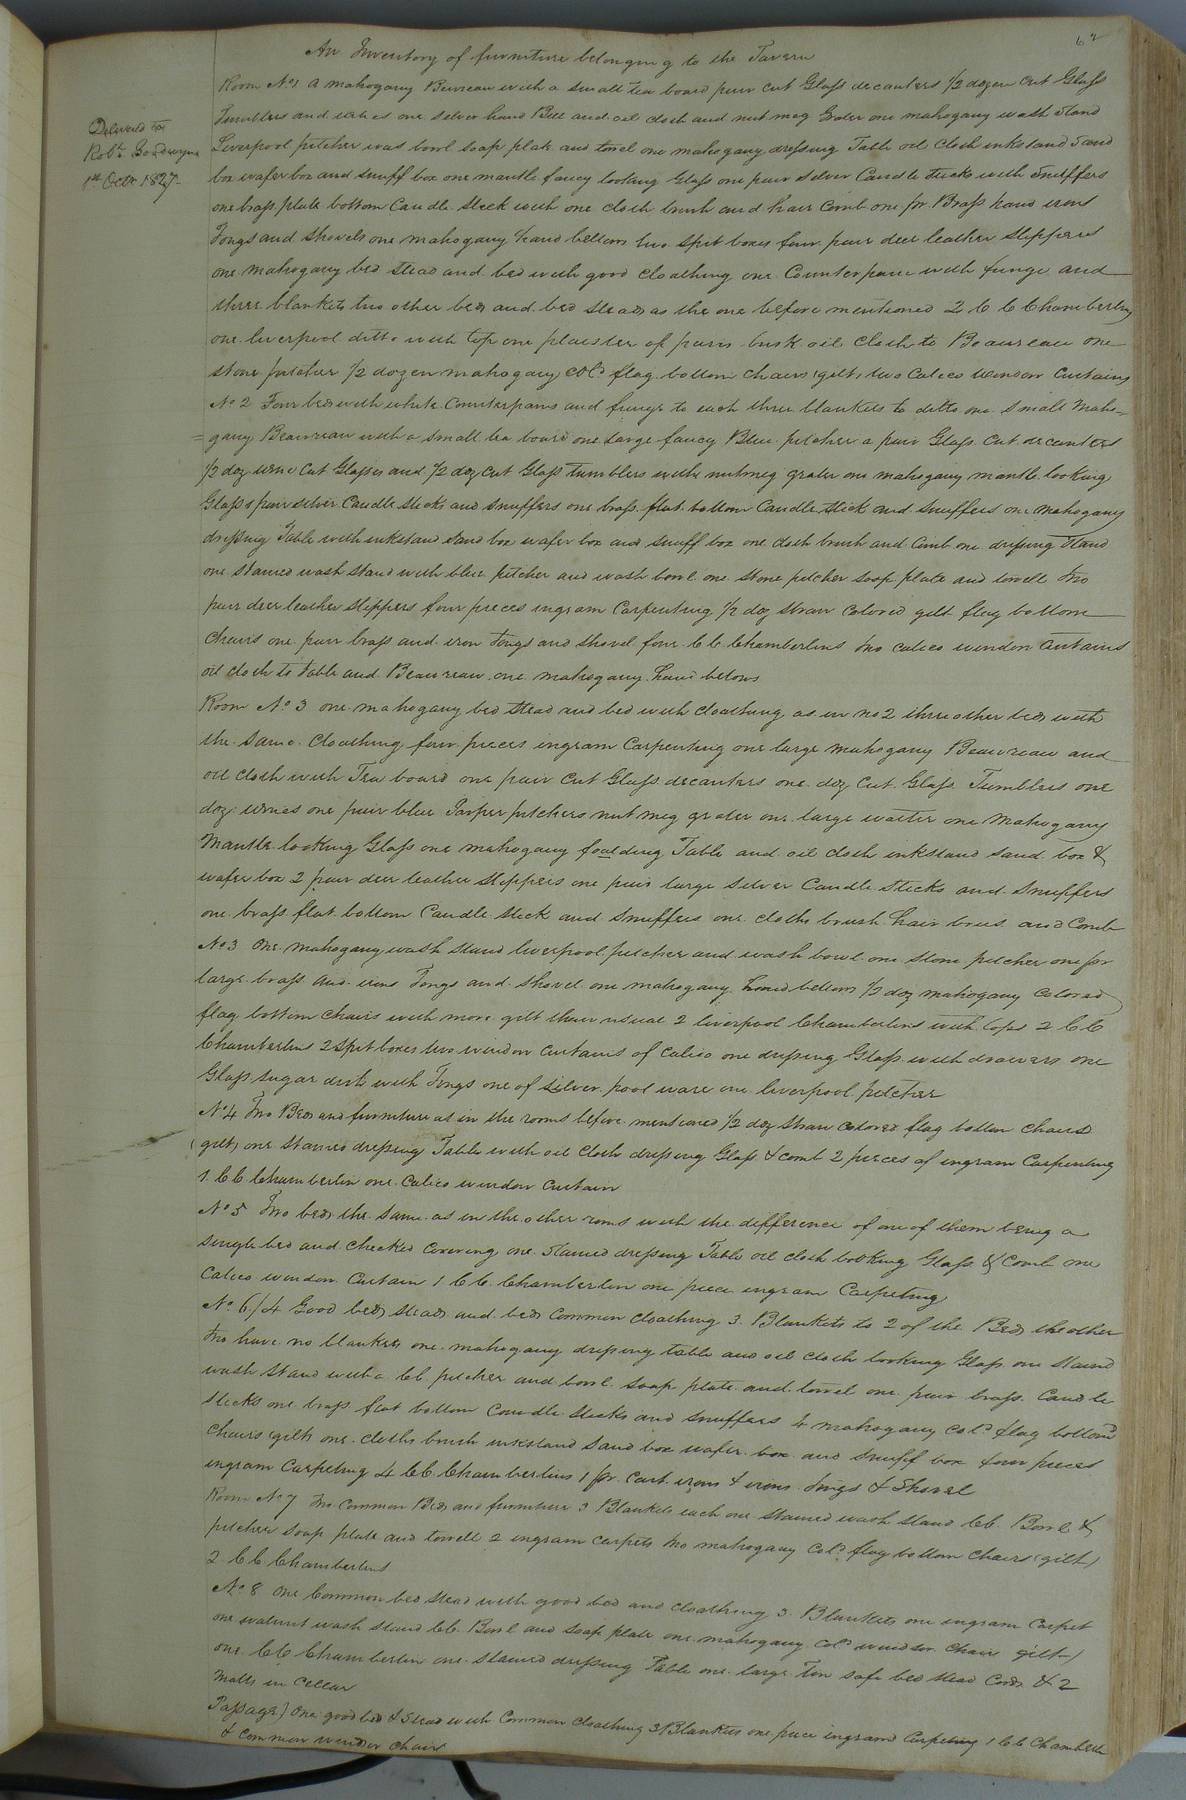 67
An Inventory of furniture belonging to the Tavern
Delivered to
Robt.
1st Octr 1827-
Room No 1 a mahogany Beureau with a small tea board pair cut Glass decanters 1/2 dozen cut Glass
Tumblers and wines one silver hand Bell and oil cloth and nut meg Grater one mahogany wash stand
Liverpool pitcher was bowl soap plate and towel one mahogany dressing Table oil cloth inkstand sand
box wafer box and snuff box one mantle fancy looking Glass one pair silver Candle sticks with snuffers
one brass plate bottom Candle stick with one cloth brush and hair Comb one pr Brass hand irons
Tongs and shovels one mahogany hand bellows two spit boxes four pair deer leather slippers
one mahogany bed stead and bed with good cloathing one Counterpain with fringe and
three blankets two other beds and bed steads as the one before mentioned 2 C C Chamberlins
one liverpool ditto with top one plaister of paris busk oil cloth to Beaureau one
stone pitcher 1/2 dozen mahogany cold flag bottom chairs (gilt) two Calico window Curtains
No 2 Four beds with white Counterpains and fringe to each three blankets to ditto one small maho=
=gany Beaureau with a small tea board one large fancy Blue pitcher a pair Glass cut decanters
1/2 doz wine cut Glasses and 1/2 doz cut Glass tumblers with nutmeg grater one mahogany mantle looking
Glass 1 pair silver Candle sticks and snuffers one brass flat bottom Candle stick and snuffers one mahogany
dressing Table with inkstand sand box wafer box and snuff box one cloth brush and Comb one dressing stand
one stained wash stand with blue pitcher and wash bowl one stone pitcher soap plate and towell two
pair deer leather slippers four pieces ingram Carpenting 1/2 doz straw Colored gilt flag bottom
Chairs one pair brass and iron tongs and shovel four C C Chamberlins two calico window Curtains
oil cloth to table and Beaureau one mahogany hand belows
Room No 3 one mahogany bed stead and bed with cloathing as in no 2 three other beds with
the same cloathing four pieces ingram Carpenting one large mahogany Beaureau and
oil cloth with Tea board one pair cut Glass decanters one doz cut Glass Tumblers one
doz wines one pair blue Jasper pitchers nut meg grater one large waiter one mahogany
Mantle looking Glass one mahogany foulding Table and oil cloth inkstand sand box &
wafer box 2 pair deer leather slippers one pair large silver Candle sticks and snuffers
one brass flat bottom Candle stick and snuffers one cloths brush hair brus and Comb
No 3 one mahogany wash stand liverpool pitcher and wash bowl one stone pitcher one pr
large brass and irons Tongs and shovel one mahogany hand bellows 1/2 doz mahogany Colored
flag bottom chairs with more gilt than usual 2 liverpool Chamberlins with tops 2 C C
Chamberlins 2 spit boxes two window curtains of calico one dressing Glass with drawers one
Glass sugar dish with Tongs one of silver pool ware one liverpool pitcher
No 4 Two Beds and furniture as in the rooms before mentioned 1/2 doz straw colored flag bottom chairs
(gilt) one stained dressing Table with oil cloth dressing Glass & comb 2 pieces of ingram Carpenting
1 C C Chamberlin one calico window curtain
No 5 Two beds the same as in the other rooms with the difference of one of them being a
single bed and checked covering one stained dressing Table oil cloth looking Glass & Comb one
calico window Curtain 1 C C Chamberlin one piece ingram Carpeting
No 6/ 4 Good beds steads and beds Common cloathing 3 Blankets to 2 of the Beds the other
two have no blankets one mahogany dressing table and oil cloth looking Glass one stained
wash stand with a CC pitcher and bowl soap plate and towel one pair brass Candle
sticks one brass flat bottom Candle sticks and snuffers 4 mahogany cold flag bottomd
chairs (gilt) one cloths brush inkstand sand box wafer box and snuff box four pieces
ingram Carpeting 4 CC Chamberlins 1 pr irons & irons tongs & Shovel
Room No 7 Two Common Beds and furniture 3 Blankets each one stained wash stand CC Bowl &
pitcher soap plate and towell 2 ingram carpets two mahogany cold flag bottom chairs (gilt)
2 CC Chamberlins
No 8 one Common bed stead with good bed and cloathing 3 Blankets one ingram Carpet
one walnut wash stand CC Bowl and soap plate one mahogany cold windsor chair gilt)
one CC Chamberlin one stained dressing Table one large Tin safe bed stead Cords & 2
Matts in Cellar
Passage} One good bed & Stead with Common cloathing 3 Blankets one piece ingrain Carpeting 1 CC Chamberlin
& Common windsor chair